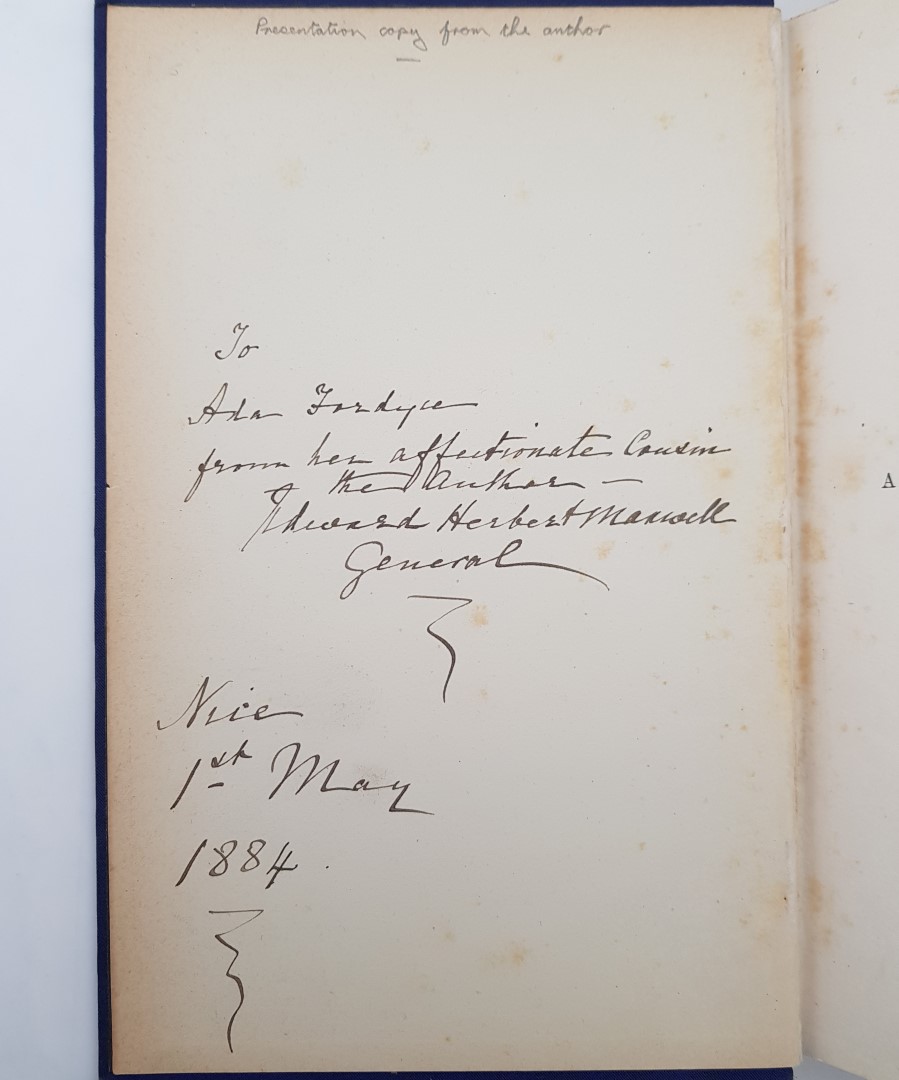 Presentation copy from the author
To
Ada Fordyce
from her affectionate Cousin
the Author —
Edward Herbert Maxwell
General
Nice
1st May
1884.
A